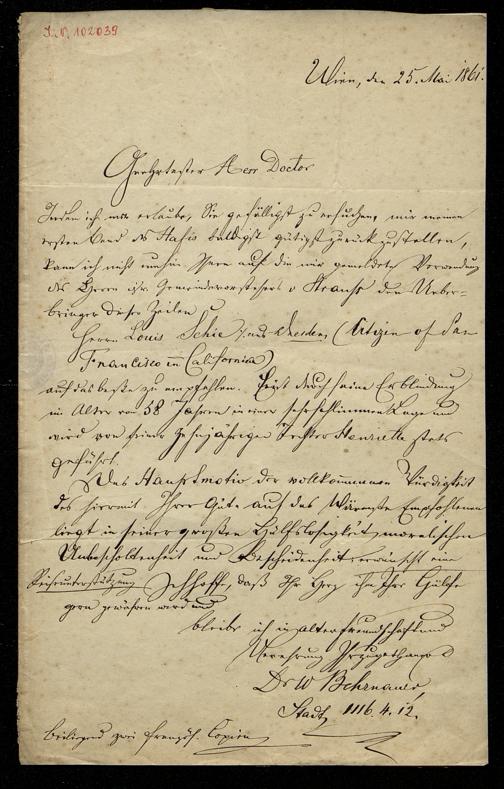 I. N. 102039
Wien, den 25. Mai 1861.
Geehrtester Herr Doctor
Indem ich mir erlaube, Sie gefälligst zu ersuchen, mir meinen
ersten Band des Hafis baldigst gütigst zurückzustellen,
kann ich nicht umhin Ihnen auf die mir gemeldete Verwendung
des Herrn isr. Gemeindevorstehers v den Ueber-
bringer dieser Zeilen
Herrn Louis Schie aus Dresden, (Citizen of San
Francisco in California)
auf das beste zu empfehlen. Er ist durch seine Erblindung
im Alter von 58 Jahren in einer sehr schlimmen Lage und
wird von seiner zehnjährigen Tochter Henriette stets
geführt.
Das Hauptmotiv der vollkommenen Würdigkeit
des hiermit Ihrer Güte auf das Wärmste Empfohlenen
liegt in seiner großen Hülfslosigkeit, moralischen
Unbescholtenheit und Bescheidenheit, erwünscht eine
Reiseunterstützung. Ich hoffe, daß Ihr Herz ihm Ihre Hülfe
gern gewähren wird und
bleibe ich in alter Freundschaft und
Verehrung Ihr zugethaner
Dr W Behrnauer,
Stadt, 1116. 4. 12.
Beiliegend zwei französ. Copien